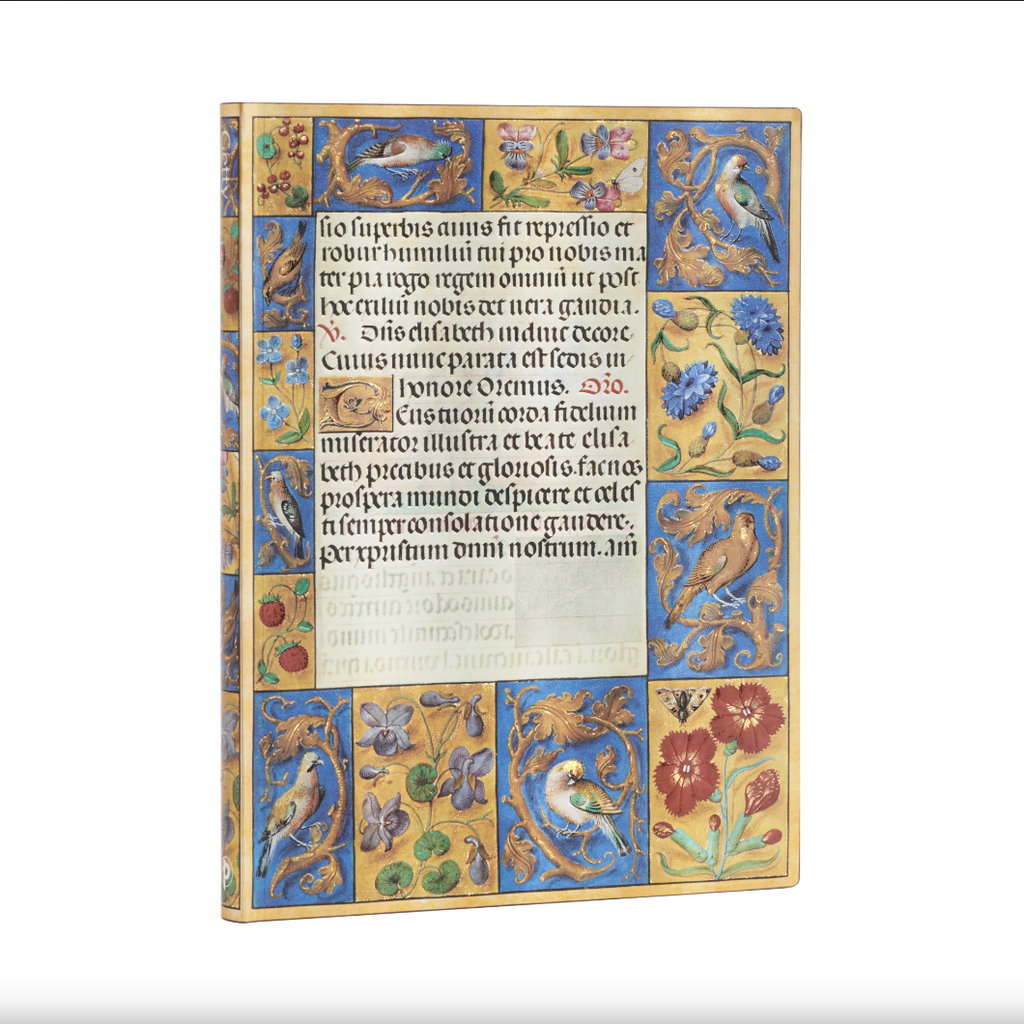 sio superbis cuius fit repressio et
robur humiliū tui pro nobis ma
ter pia rogo regem omniū ut post
hoc exiliū nobis det vera gaudia.
V̄. Dñs elisabeth induit decore.
Cuius nunc parata est sedis in
honore Oremus. Orō.
Deus tuorū corda fidelium
miserator illustra et beate elisa
beth precibus et gloriosis. fac nos
prospera mundi despicere et celes
ti semper consolatione gaudere.
Per xpristum dnm̄ nostrum. am̄